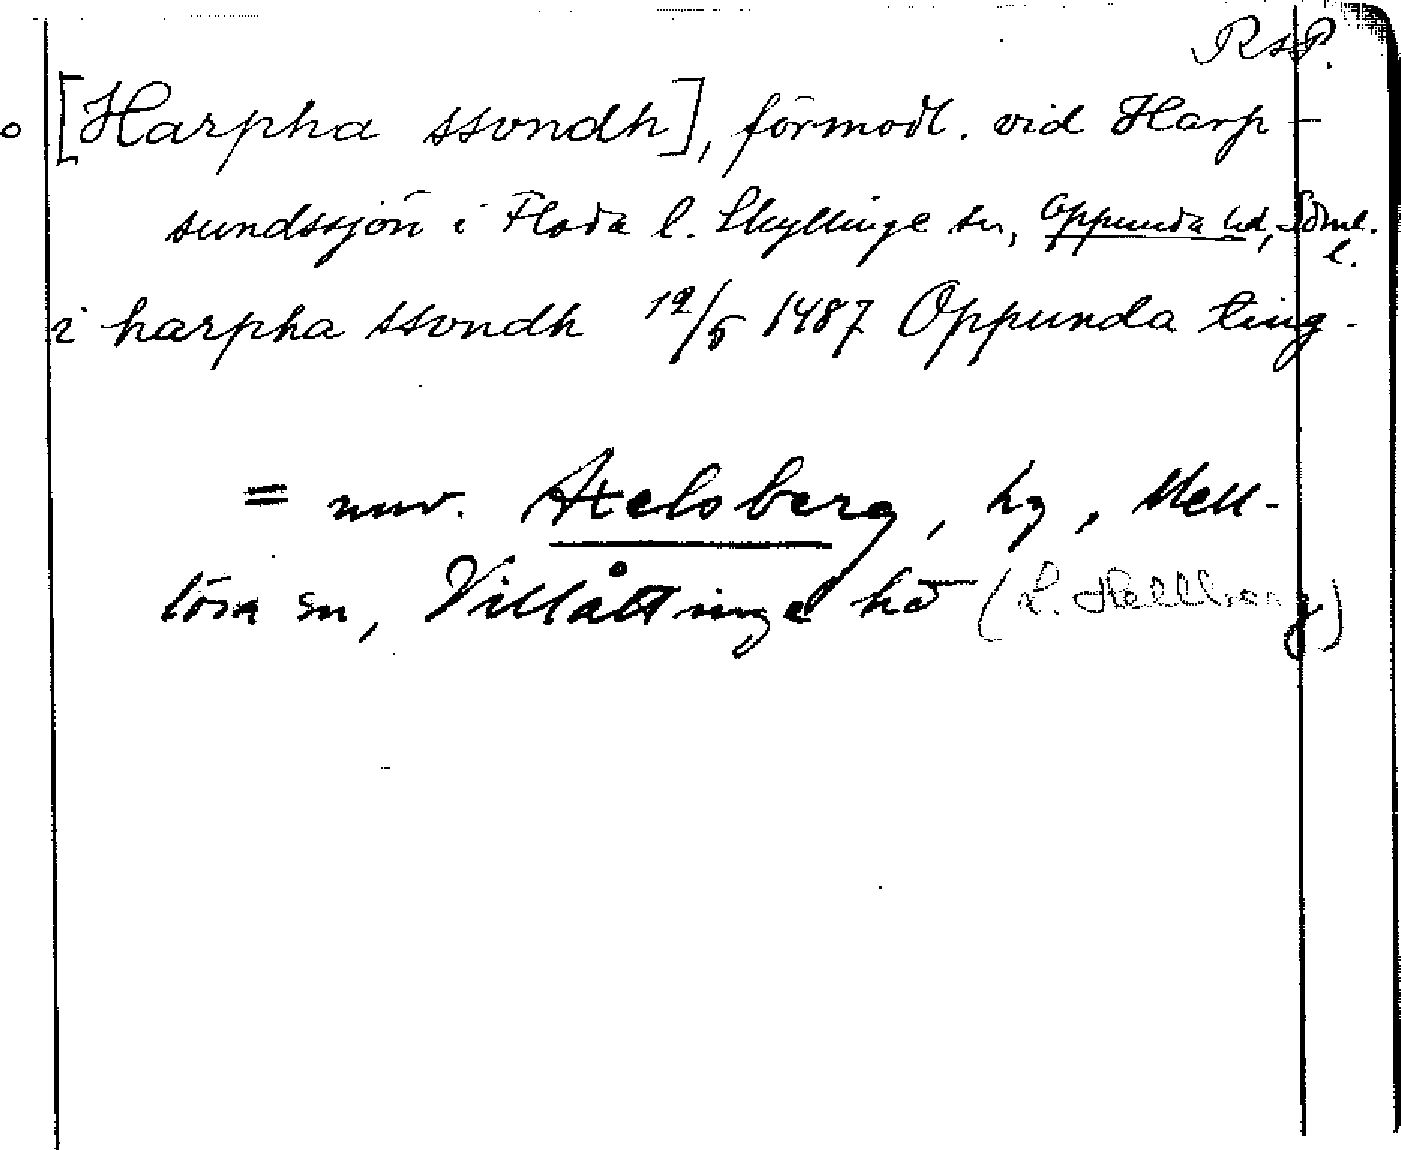 RAP.
[Harpha ssvndh], förmodl. vid Harp-
sundssjön i Floda l. Skyllinge sn, Oppunda hd, Söml.
l.
i harpha ssvndh 12/5 1487 Oppunda ting.
= nuv. Axelsberg, hg, Mell-
lösa sn, Villåttinge hd (L. Hellberg)